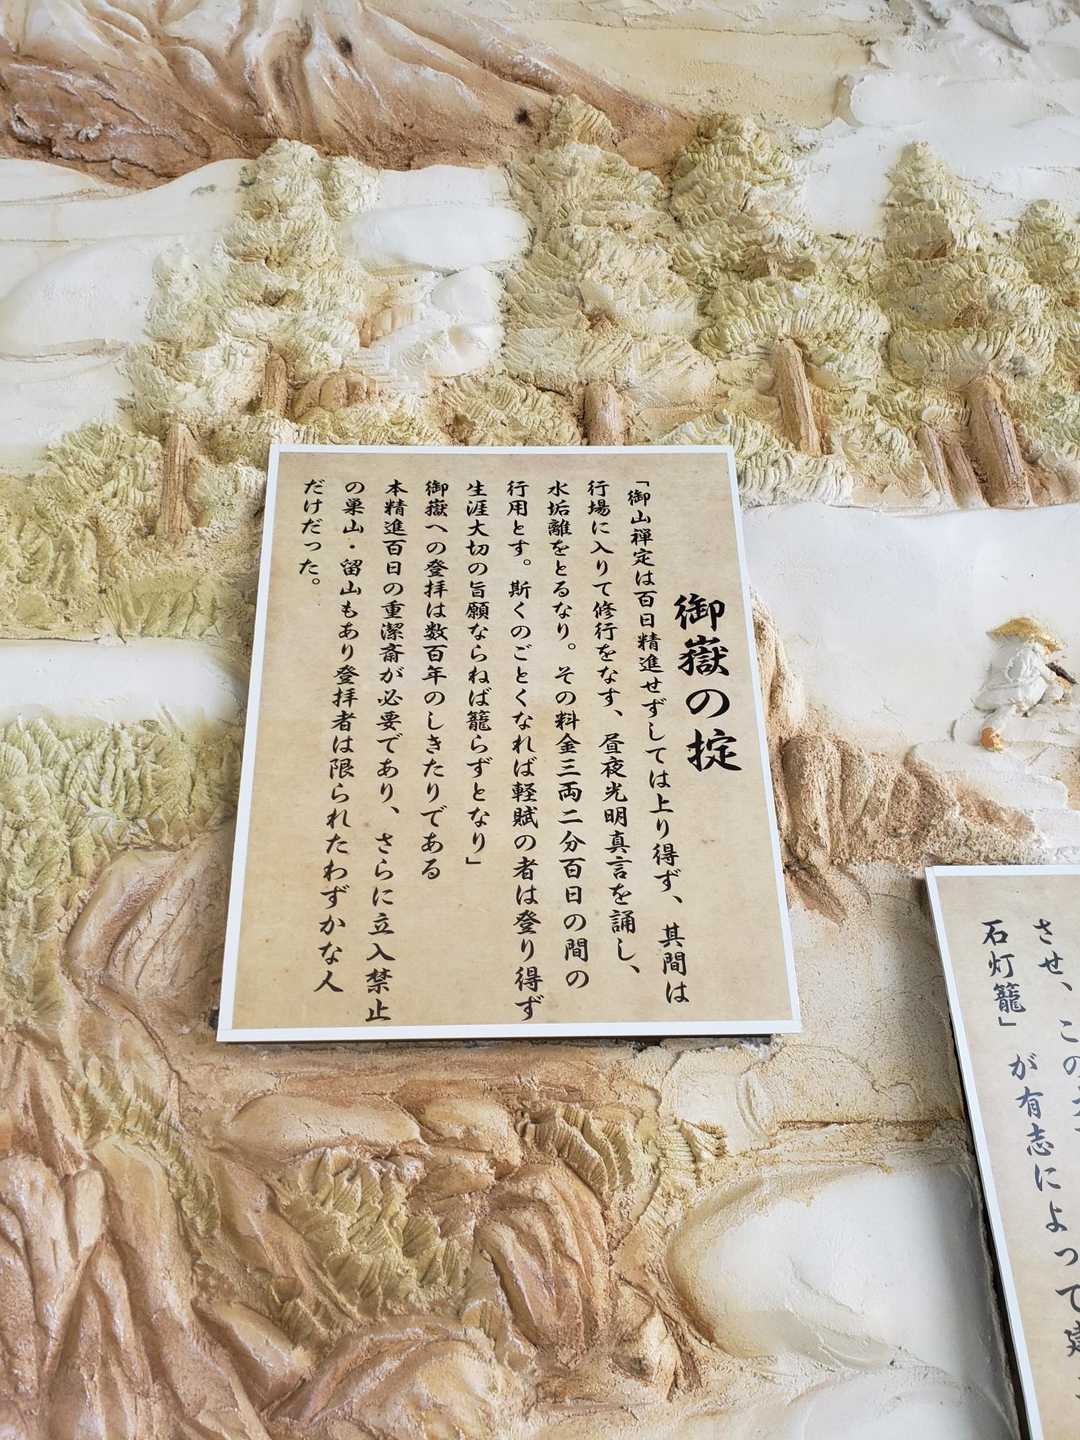 御嶽の掟
「御山禅定は百日精進せずしては上り得ず、其間は
行場に入りて修行をなす、昼夜光明真言を誦し、
水垢離をとるなり。その料金三両二分百日の間の
行用とす。斯くのごとくなれば軽賦の者は登り得ず
生涯大切の旨願ならねば籠らずとなり」
御嶽への登拝は数百年のしきたりである
本精進百日の重潔斎が必要であり、さらに立入禁止
の巣山・留山もあり登拝者は限られたわずかな人
だけだった。
させ、この
石灯籠」が有志によって建